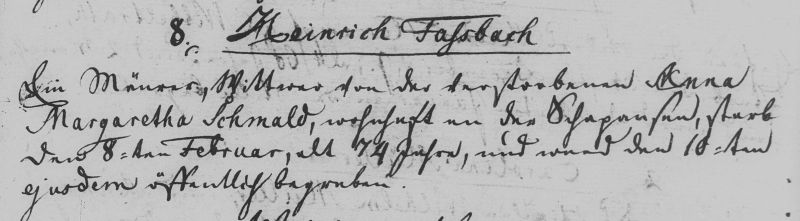 8. Heinrich Fassbach
Ein Mäurer, Wittwer von der verstorbenen Anna
Margaretha Schmald, wohnhaft an der Schapansen, starb
den 8=ten Februar, alt 74 Jahre, und ward den 10=ten
ejusdem öffentlich begraben.